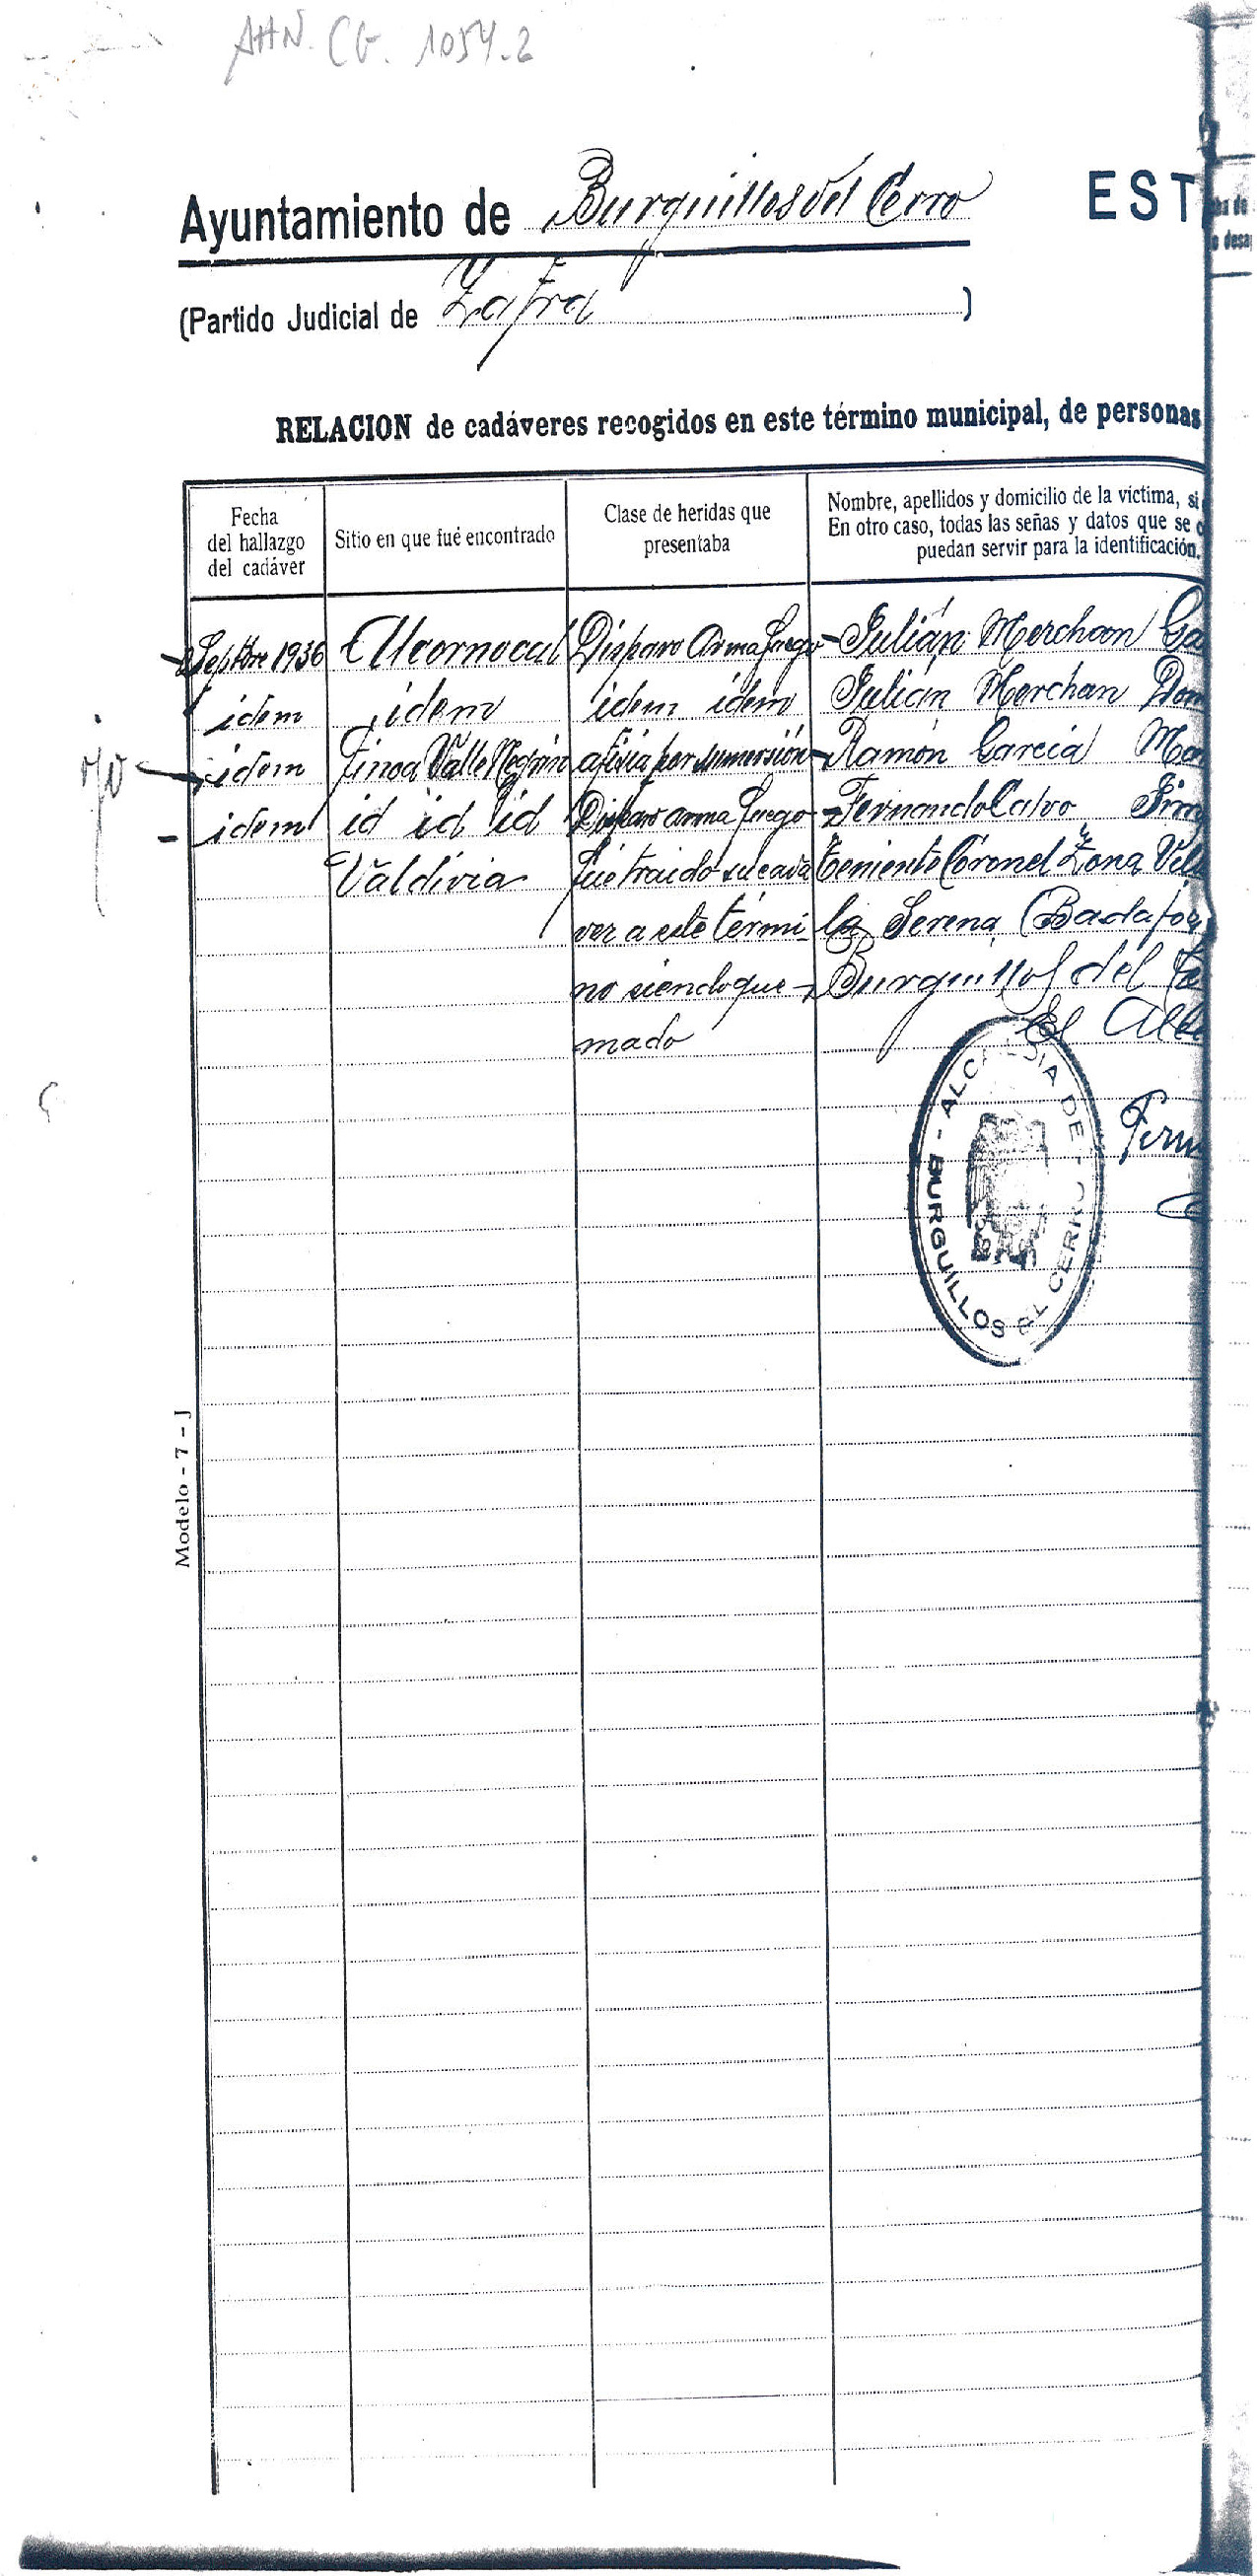 AHN. CG. 1054.2
Ayuntamiento de Burguillos del Cerro
EST
(Partido Judicial de Zafra)
RELACION de cadáveres recogidos en este término municipal, de personas
Fecha del hallazgo del cadáver
Sitio en que fué encontrado
Clase de heridas que presentaba
Nombre, apellidos y domicilio de la víctima, si
En otro caso, todas las señas y datos que se
puedan servir para la identificación.
1936 Alcornocal Disparo Arma fuego - Julián Merchan
idem idem idem idem Julián Merchan
idem Finca asfixia por sumersión - Ramón Garcia
- idem id id id Disparo arma fuego - Fernando Calvo
Valdivia fue traido su cada Teniente Coronel Zona
ver a este térmi la Serena (Badajoz
no siendo que - Burguillos del
mado El
ALCALDIA DE
BURGUILLOS EL CERRO
Modelo - 7 - J